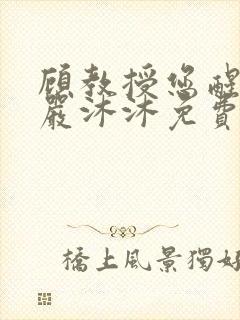 顧教授您醒
嚴沐沐免費
橋上風景獨好